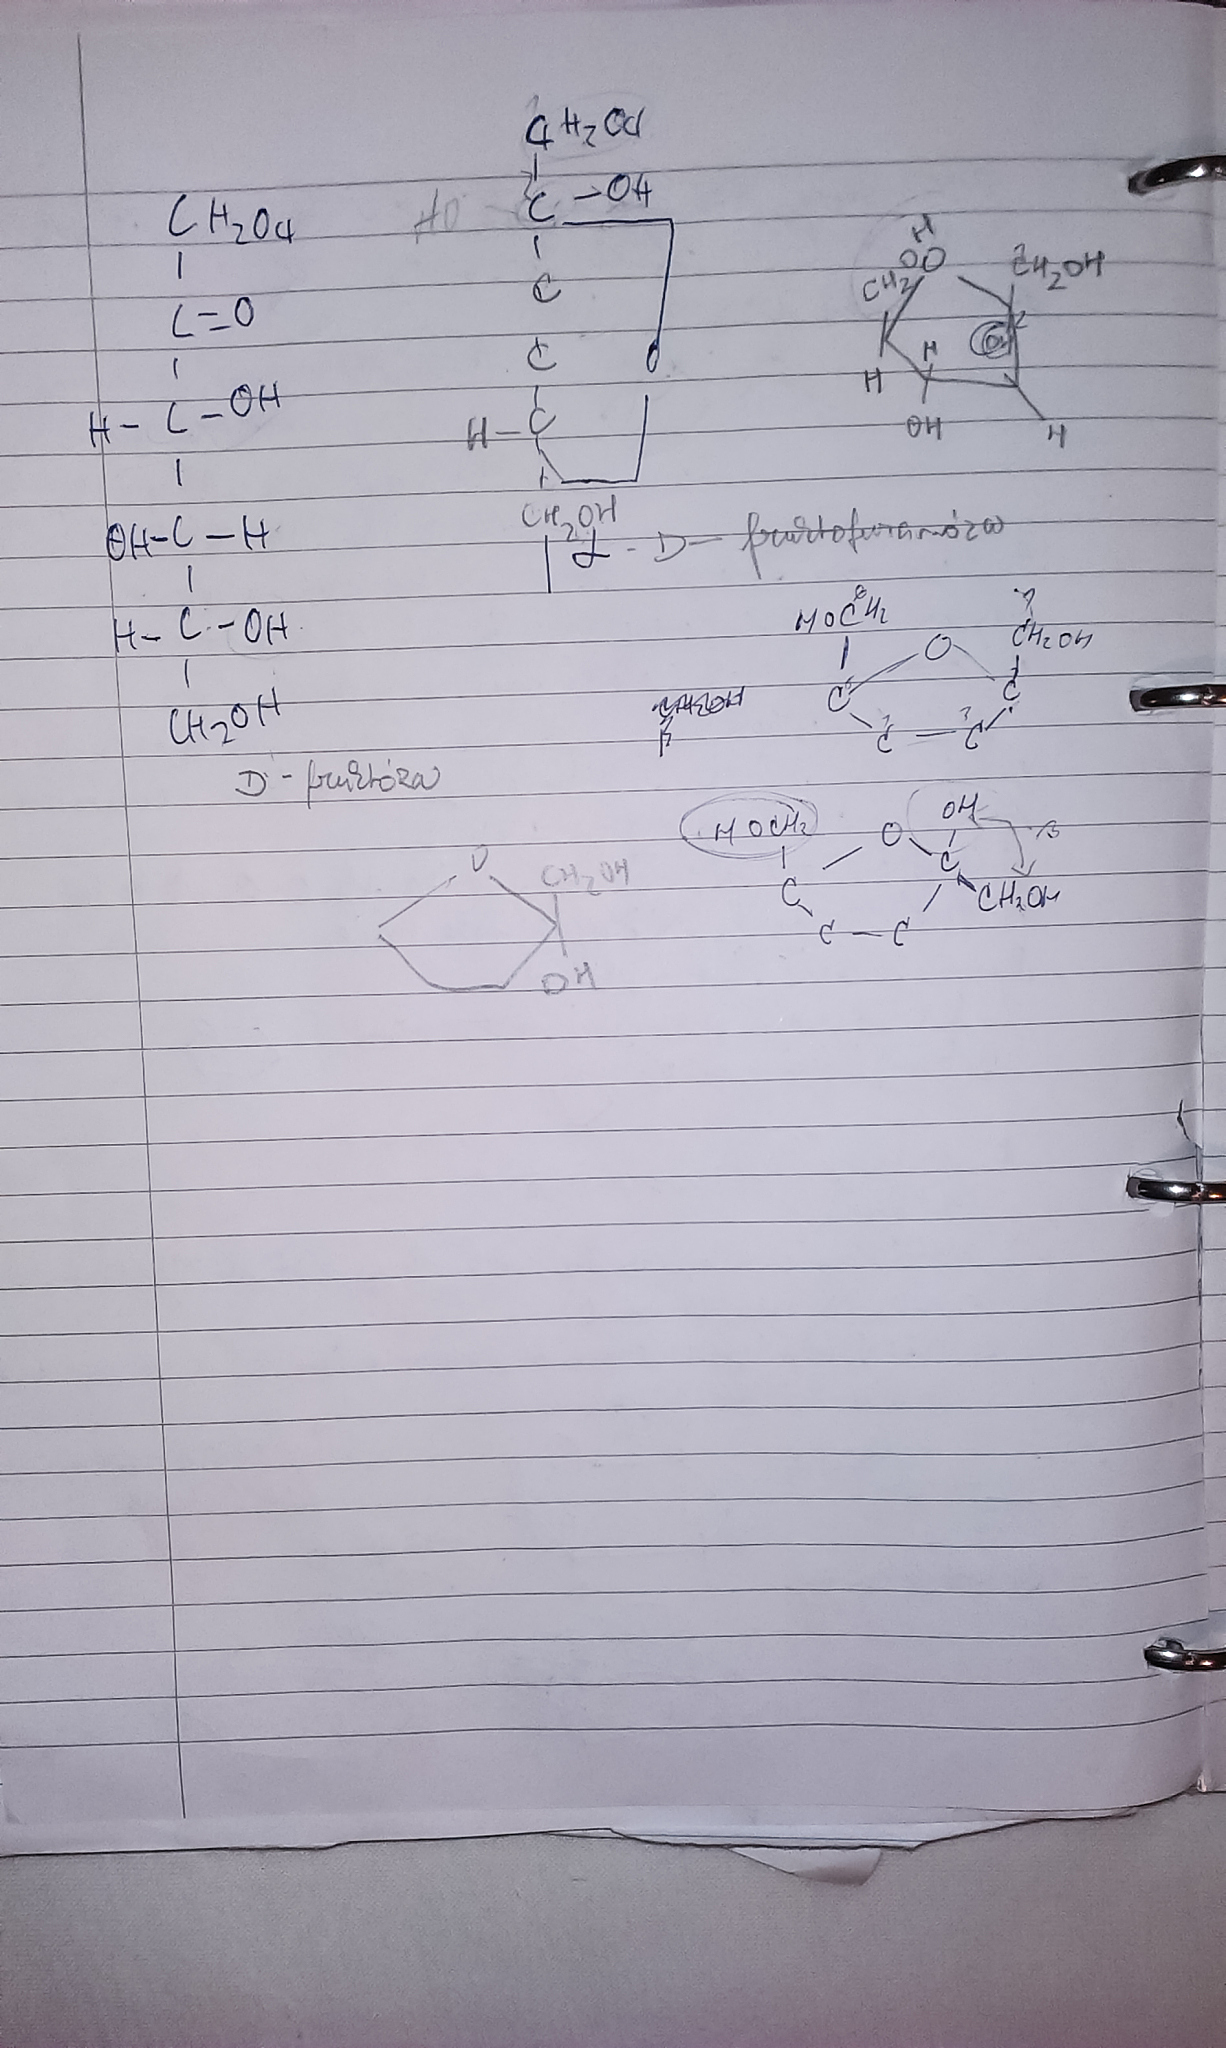 CH2OH
C=O
H-C-OH
OH-C-H
H-C-OH
CH2OH
D-fruktóza
CH2OH
HO C-OH
C
C O
H-C
CH2OH
α-D-fruktofuranóza
H
O
CH2 CH2OH
H H
OH H
HOCH2 O CH2OH
C C
C-C
HOCH2 O OH β
C C CH2OH
C-C
O CH2OH
OH